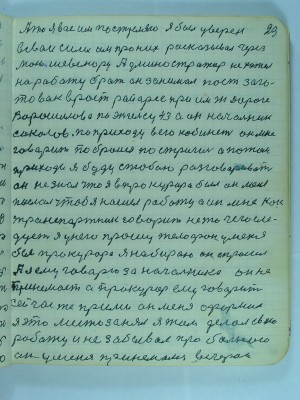 23
А то я вас им постреляю. Я был уверен
в свои силы им про них расказывал через
мою шевелюру Администратор не хотел
на работу брат он занимал пост заго-
товок в рост райаресе при им ж дороге
Ворошилова по
соколов, по приходу в его кобинет он мне
говорит побрейся постригись а потом
приходи я буду с тобою разговаревать
он не знал что я в прокурора был он меня
послал чтоб я нашел работу а он мне
говорит нето чего сле-
дует я у него прошу телофон у меня
был прокурора я набираю он спросил
А я ему говорю за начальнике он не
принемает а прокурор ему говорит
сейчас же прими он меня оформил
я это место занял я там делал свою
работу и не забывал про больного
он у меня принемал вечером